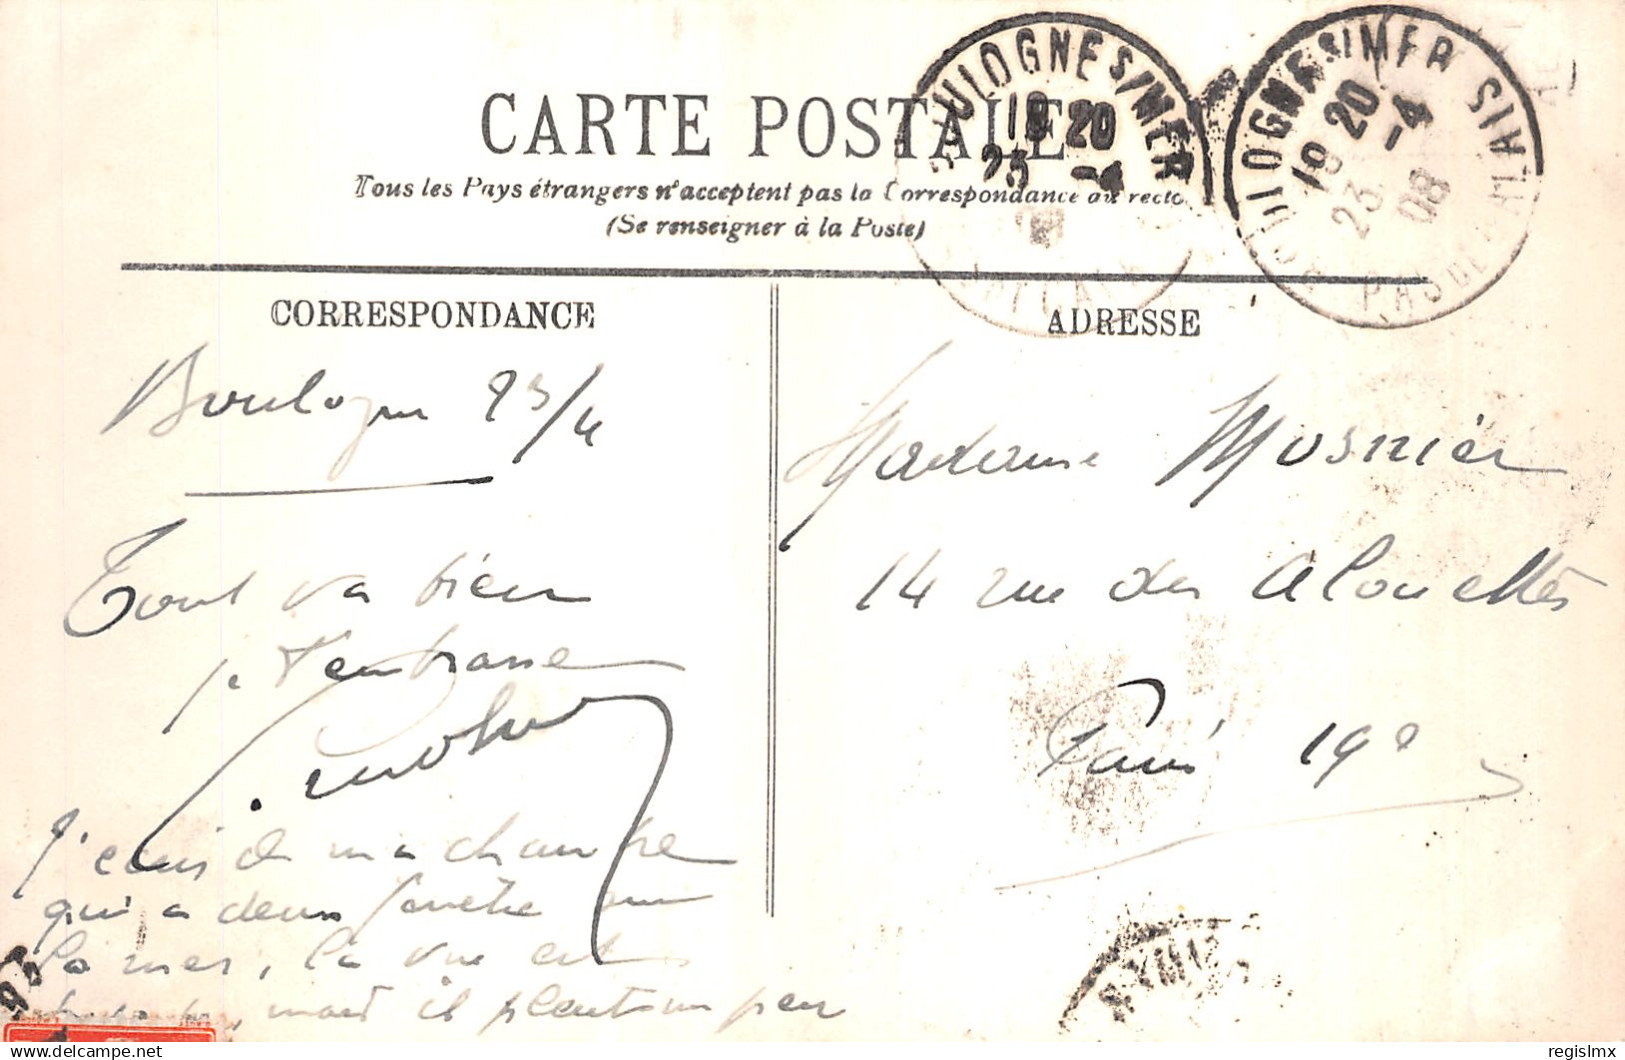 CARTE POSTALE
Tous les Pays étrangers n'acceptent pas la Correspondance au recto
(Se renseigner à la Poste)
BOULOGNE S/MER
19 20
23 -4
BOULOGNE S/MER PAS DE CALAIS
19 20
23 -4
08
CORRESPONDANCE
Boulogne 23/4
Tout va bien
je t'embrasse
J'écris de ma chambre
qui a deux fenêtre sur
la mer, la vue est
, mais il pleut un peu
ADRESSE
Madame Mosnier
14 rue des Alouettes
Paris 19e
regislmx